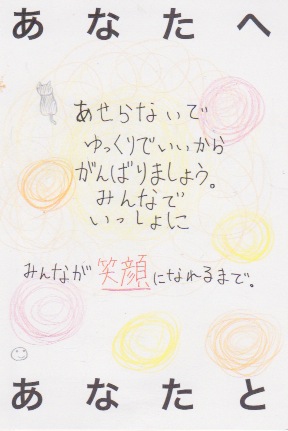 あなたへ
あせらないで
ゆっくりでいいから
がんばりましょう。
みんなで
いっしょに
みんなが笑顔になれるまで。
あなたと